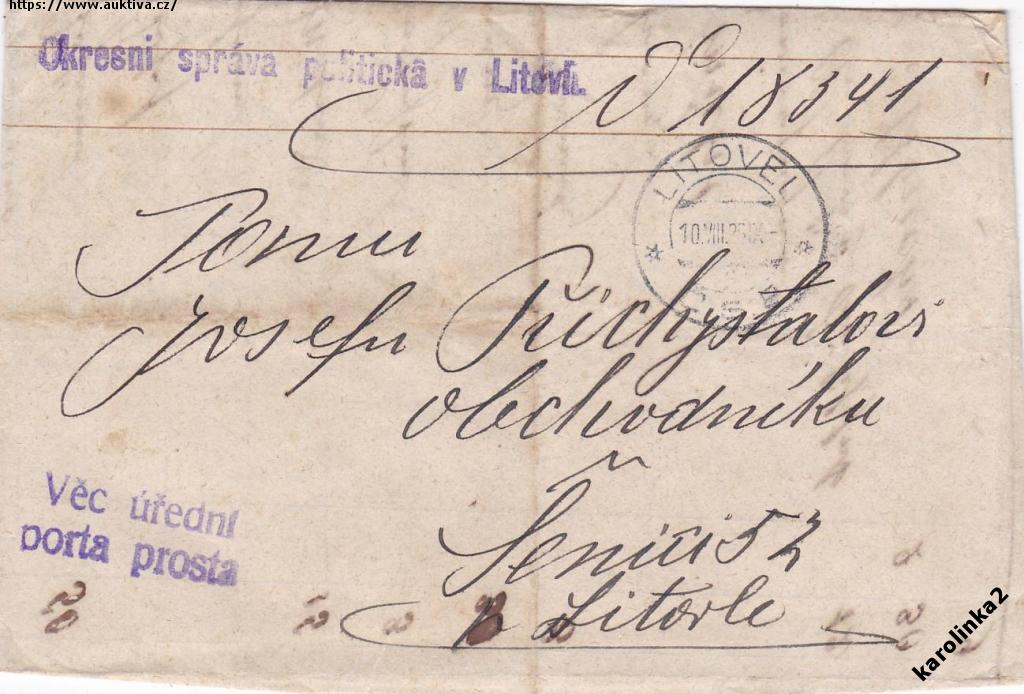 https://www.auktiva.cz/
Okresní správa politická v Litovli.
No 18341
LITOVEL
10.VIII.
Panu
Josefu Přichystalovi
obchodníku
Věc úřední
porta prosta
Senici 52
p Litovle
karolinka2